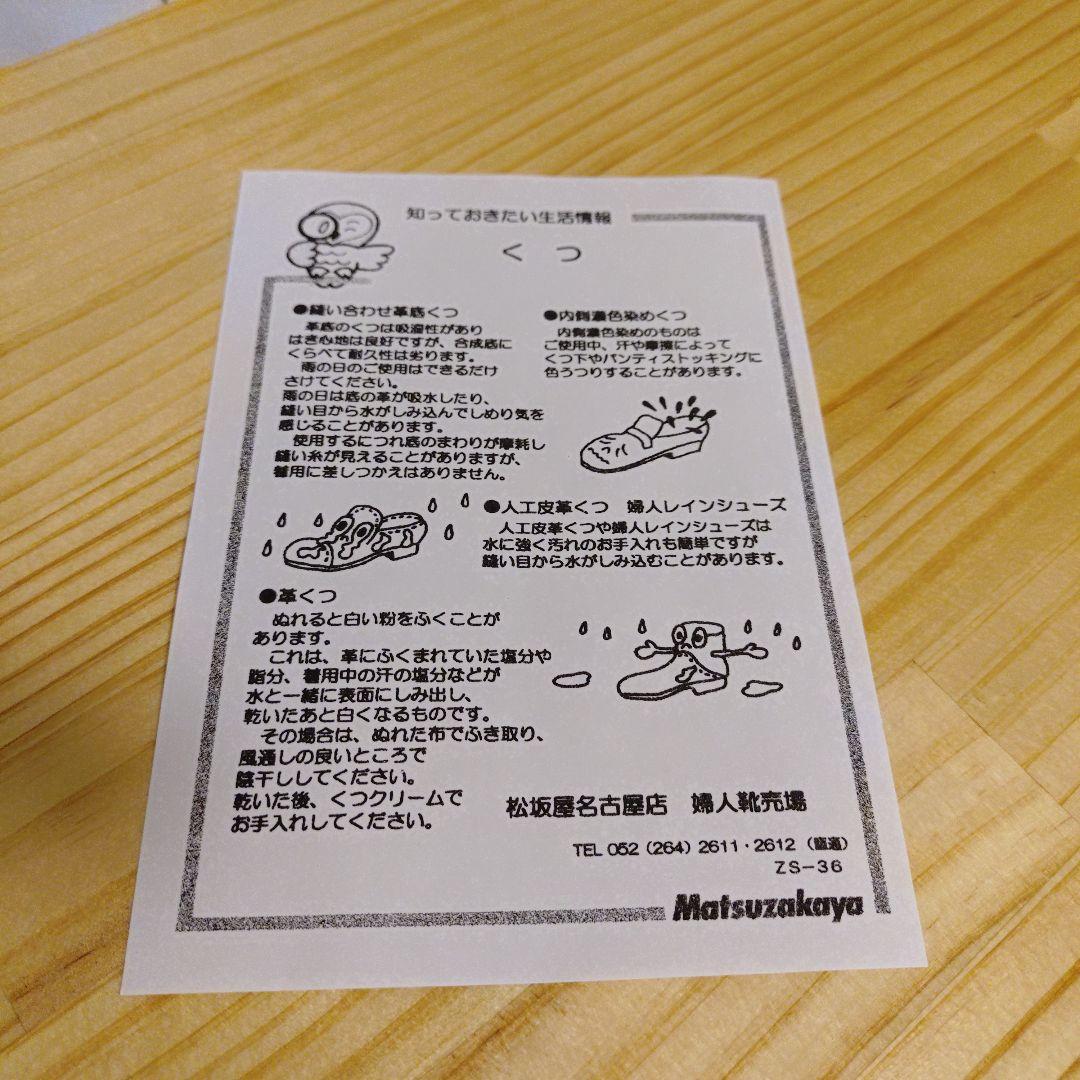 知っておきたい生活情報
くつ
●縫い合わせ革底くつ
革底のくつは吸湿性があり
はき心地は良好ですが、合成底に
くらべて耐久性は劣ります。
雨の日のご使用はできるだけ
さけてください。
雨の日は底の革が吸水したり、
縫い目から水がしみ込んでしめり気を
感じることがあります。
使用するにつれ底のまわりが摩耗し
縫い糸が見えることがありますが、
着用に差しつかえはありません。
●内側濃色染めくつ
内側濃色染めのものは
ご使用中、汗や摩擦によって
くつ下やパンティストッキングに
色うつりすることがあります。
●人工皮革くつ　婦人レインシューズ
人工皮革くつや婦人レインシューズは
水に強く汚れのお手入れも簡単ですが
縫い目から水がしみ込むことがあります。
●革くつ
ぬれると白い粉をふくことが
あります。
これは、革にふくまれていた塩分や
脂分、着用中の汗の塩分などが
水と一緒に表面にしみ出し、
乾いたあと白くなるものです。
その場合は、ぬれた布でふき取り、
風通しの良いところで
陰干ししてください。
乾いた後、くつクリームで
お手入れしてください。
松坂屋名古屋店　婦人靴売場
TEL 052（264）2611・2612（直通）
ZS-36
Matsuzakaya